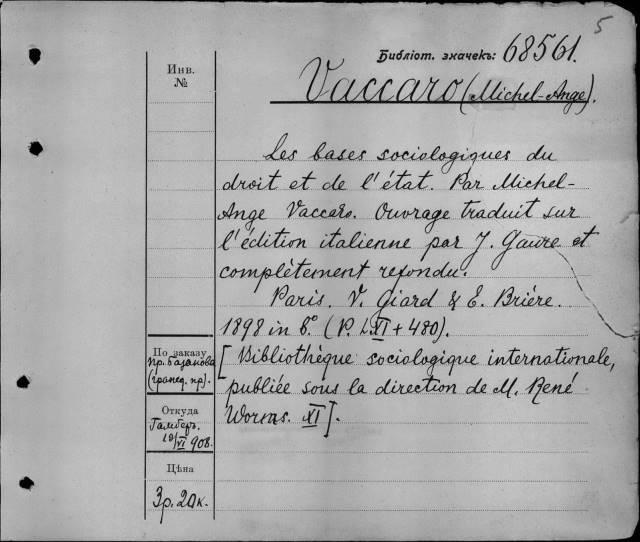 5
Библіот. значекъ: 68561.
Инв.
№
Vaccaro (Michel-Ange).
Les bases sociologiques du
droit et de l'état. Par Michel-
Ange Vaccaro. Ouvrage traduit sur
l'édition italienne par J. Gaure et
complètement refondu.
Paris. V. Giard & E. Brière.
1898 in 8°. (P. LXI + 480).
[Bibliothèque sociologique internationale,
publiée sous la direction de M. René
Worms. XI].
По заказу
пр. Базанова
(гражд. пр).
Откуда
19/VI 908.
Цѣна
3 р. 20 к.